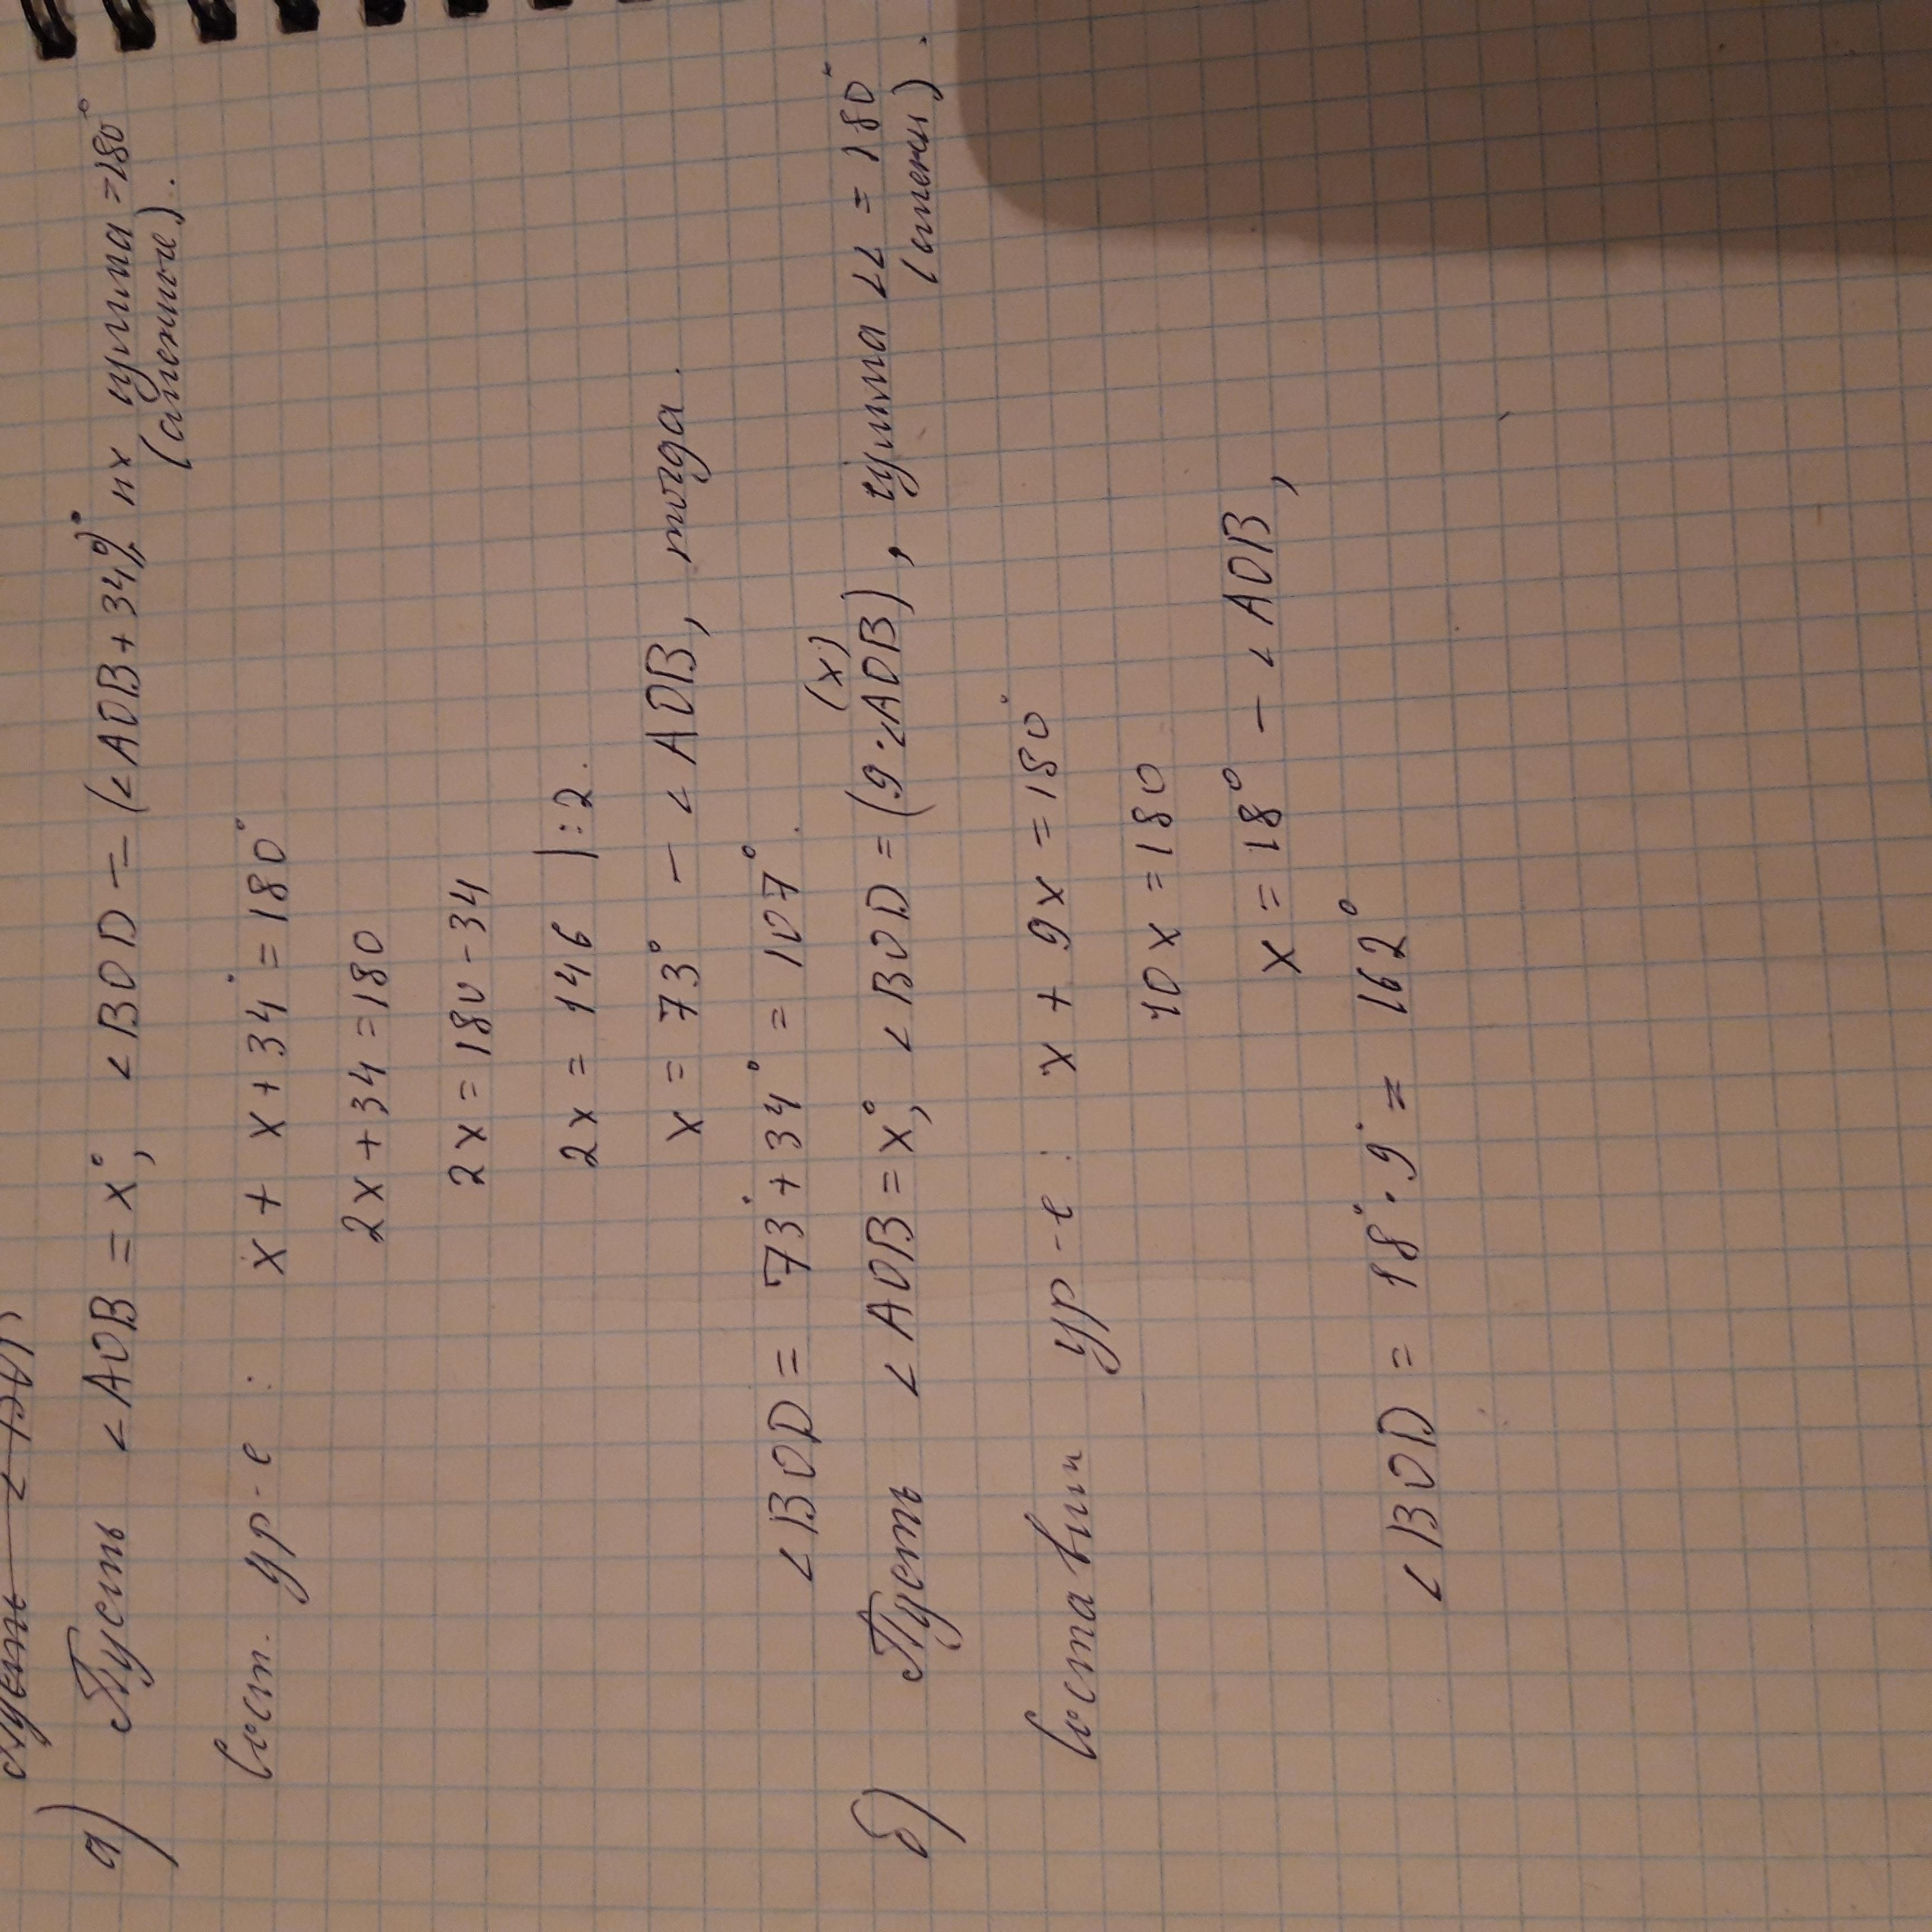 Пусть <
а) Пусть < AOB = x°, < BOD = (< AOB + 34)°, их сумма = 180°
(смежные).
Сост. ур-е : x + x + 34° = 180°
2x + 34 = 180
2x = 180 - 34
2x = 146 | : 2.
x = 73° – < AOB, тогда.
< BOD = 73° + 34° = 107°.
(x)
б) Пусть < AOB = x°, < BOD = (9·<AOB), сумма << = 180°
(смежн).
Составим ур-е : x + 9x = 180°
10x = 180
x = 18° – < AOB,
< BOD = 18°·9° = 162°